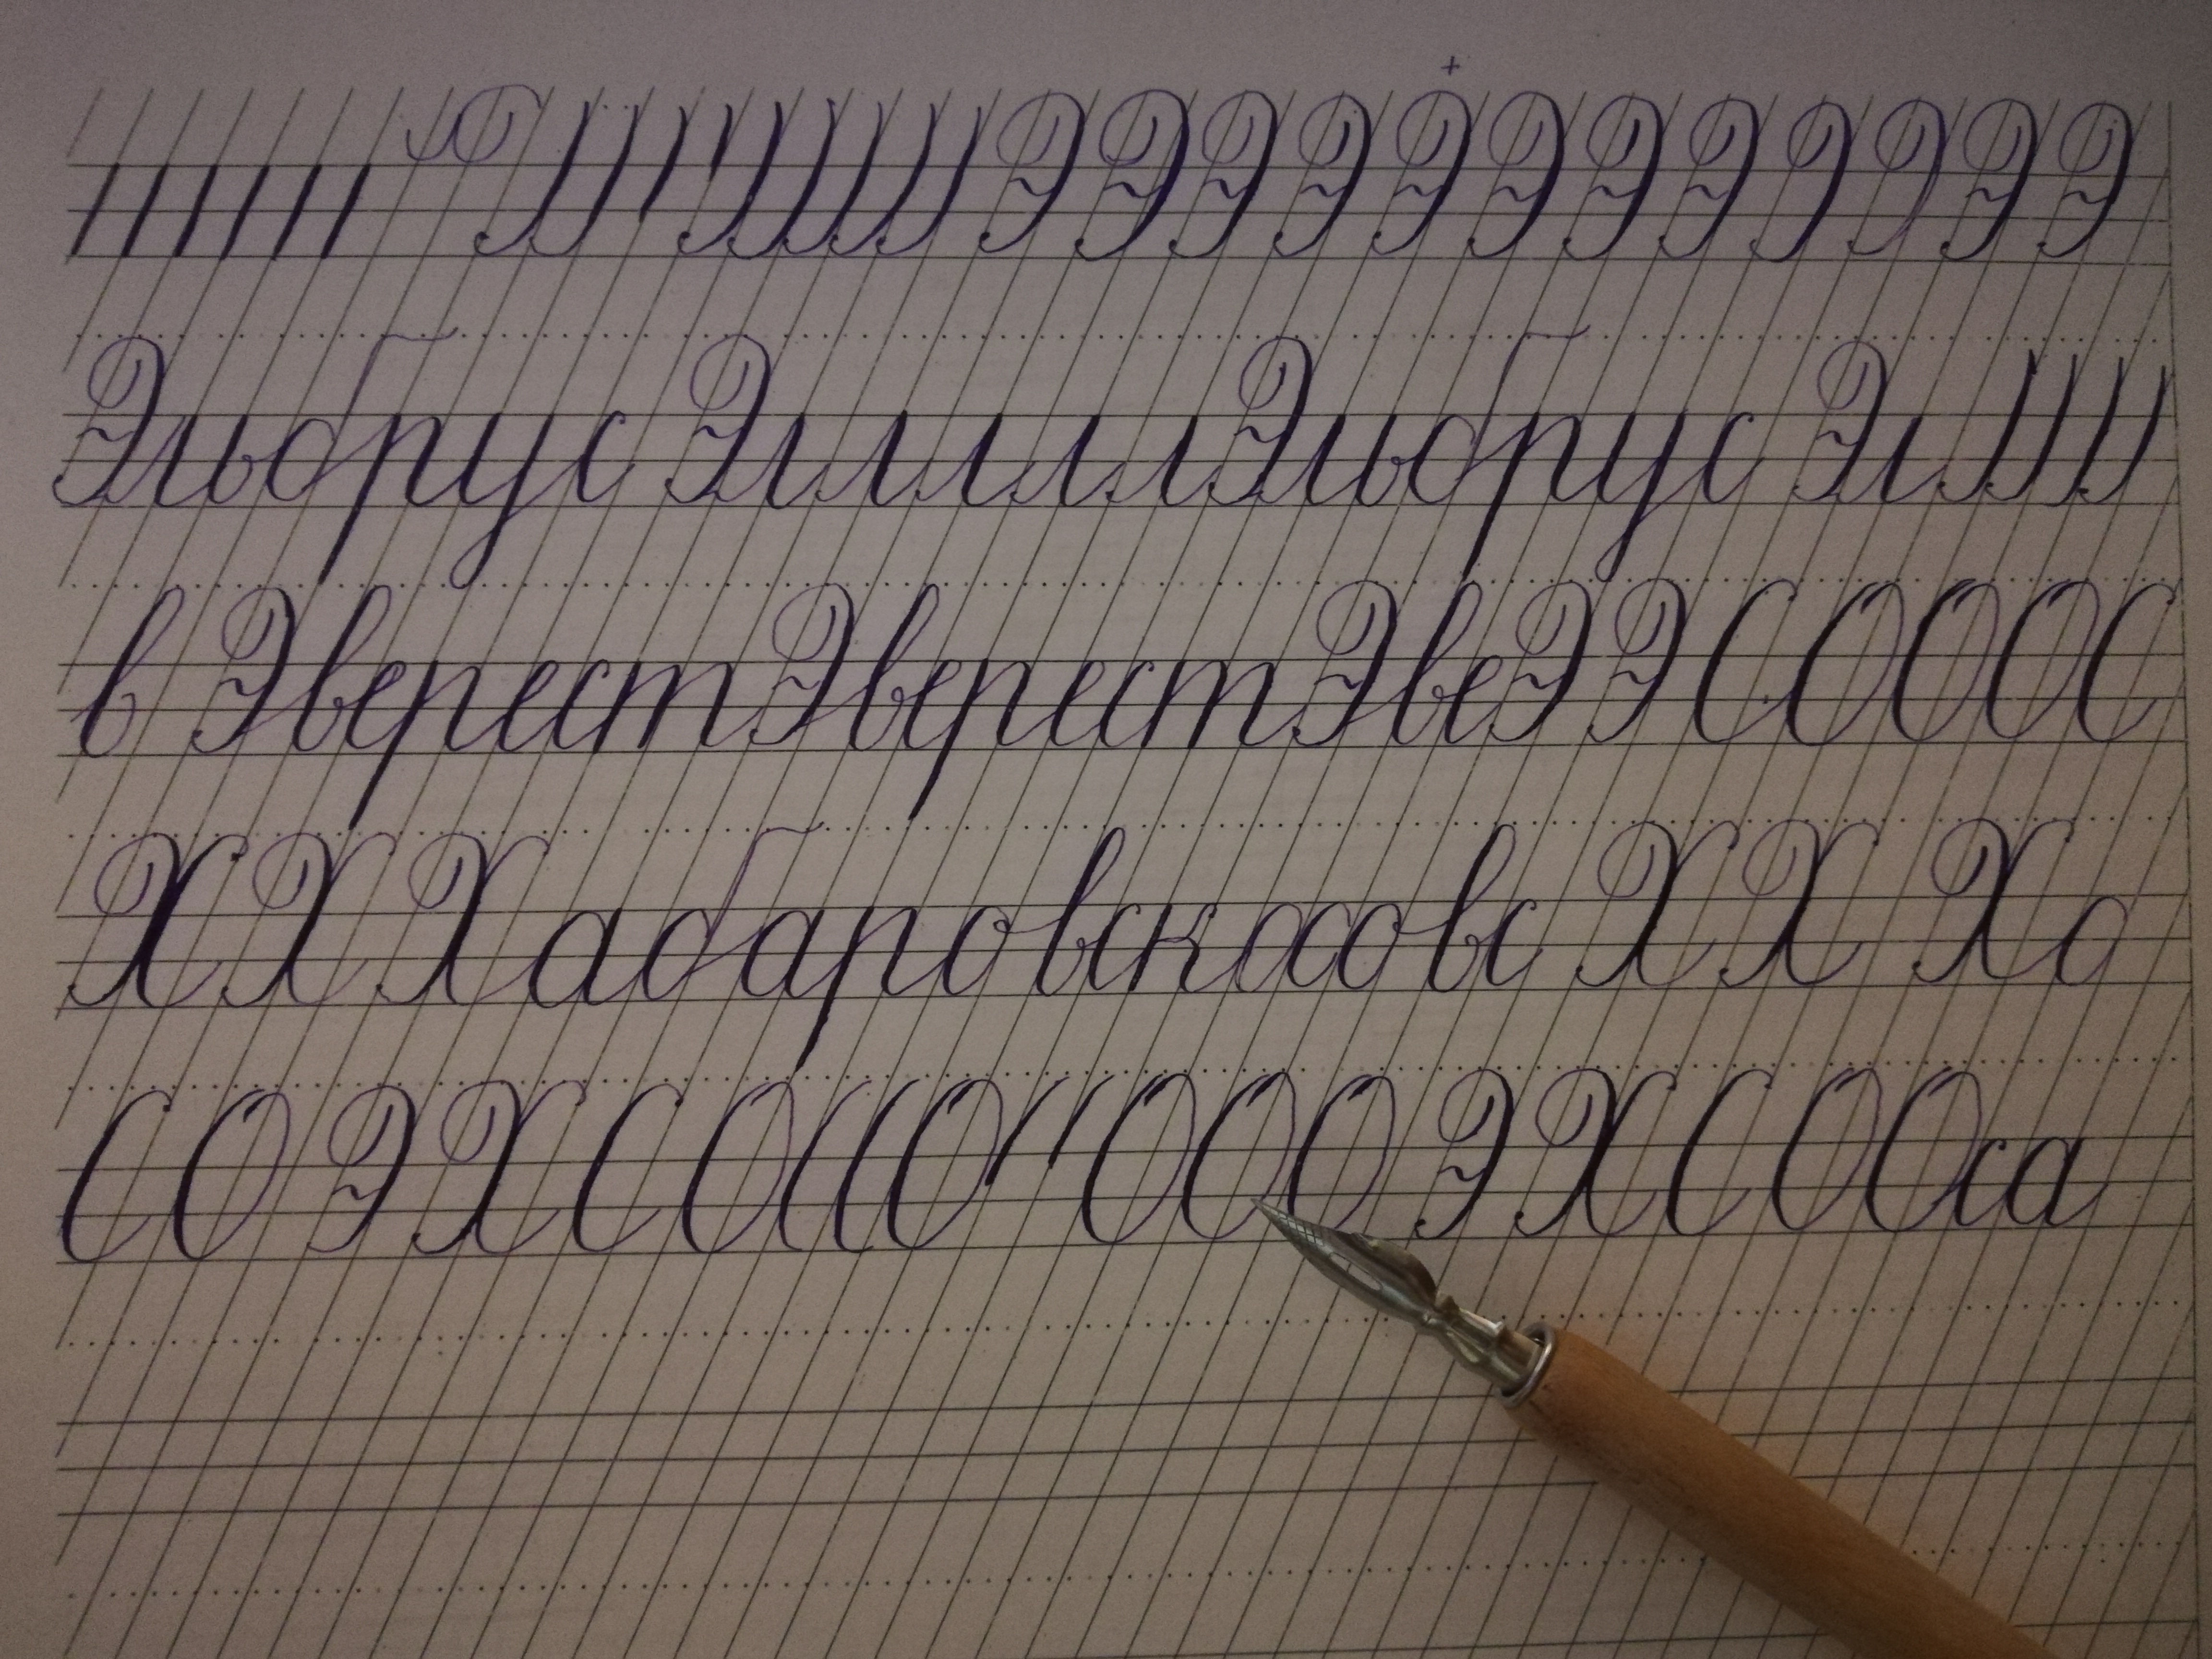 Э Э Э Э Э Э Э Э Э Э Э Э
Эльбрус Эллллл Эльбрус Эл
в Эверест Эверест Эве Э Э С О О О С
Х Х Хабаровск хховс Х Х Хо
С О Э Х С О С С О О О О Э Х С О О са